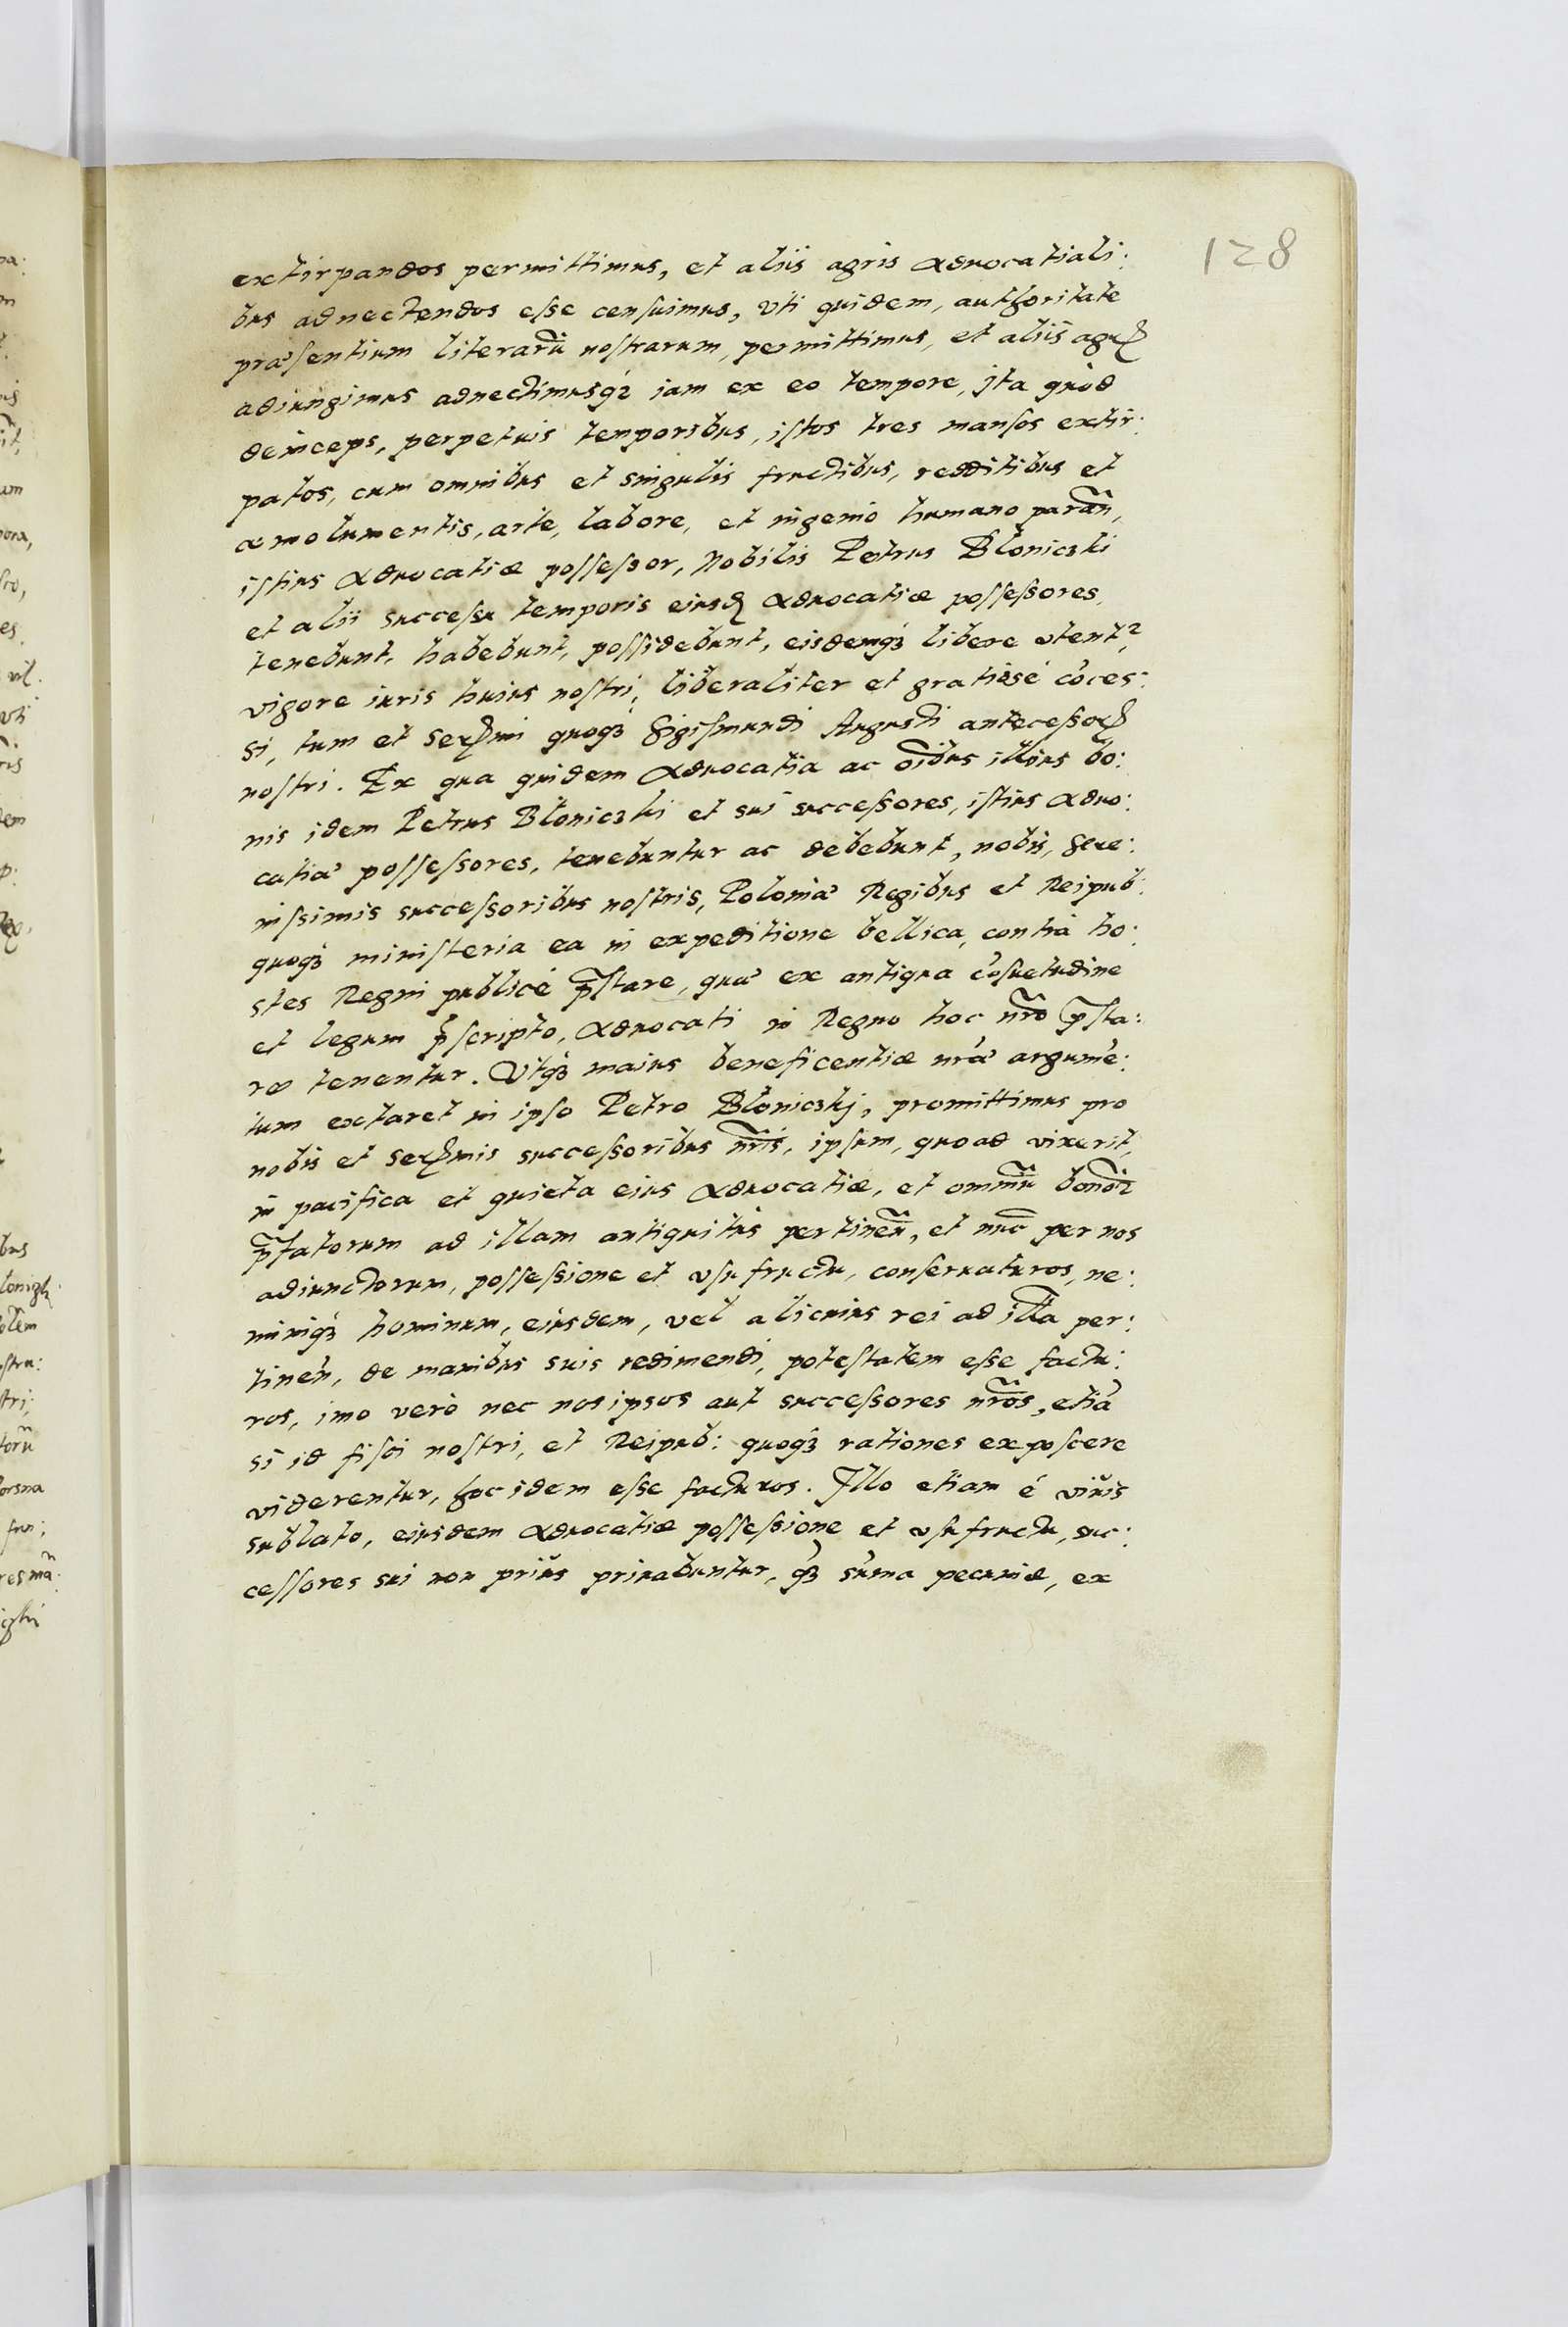 128
extirpandos permittimus, et aliis agris aduocatiali:
bus adnectendos esse censuimus, vti quidem, authoritate
præsentium literarũ nostrarum, permittimus, et aliis agr
adiungimus adnectimusq; iam ex eo tempore, jta quòd
deinceps, perpetuis temporibus, istos tres mansos extir:
patos, cum omnibus et singulis fructibus, redditibus et
æmolumentis, arte, labore, et ingenio humano parañ,
istius aduocatiæ possessor, Nobilis Petrus Błoniczki
et alii successu temporis eiusd aduocatiæ possessores,
tenebunt, habebunt, possidebunt, eisdemq; libere vtent,
vigore iuris huius nostri, liberaliter et gratiosé cõces:
si, tum et Sermi quoq; Sigismundi Augusti antecessor
nostri. Ex qua quidem aduocatia ac oĩbus illius bo:
nis idem Petrus Błoniczki et sui successores, istius aduo:
catiæ possessores, tenebuntur ac debebunt, nobis, Sere:
nissimis successoribus nostris, Poloniæ Regibus et Reipub:
quoq; ministeria ea in expeditione bellica, contrà ho:
stes Regni publicé p̃stare, quæ ex antiqua cõsuetudine
et legum p̃scripto, aduocati in Regno hoc nr̃o p̃sta:
re tenentur. Vtq; maius beneficentiæ nr̃æ argumẽ:
tum extaret in ipso Petro Błoniczkj, promittimus pro
nobis et Sermis successoribus nr̃is, ipsum, quoad vixerit,
in pacifica et quieta eius aduocatiæ, et omniũ bonor
p̃fatorum ad illam antiquitùs pertineñ, et nũc per nos
adiunctorum, possessione et vsufructu, conseruaturos, ne:
miniq; hominum, eiusdem, vel alicuius rei ad illã per:
tineñ, de manibus suis redimendi, potestatem esse factu:
ros, imo verò nec nosipsos aut successores nr̃os, etiã
si id fisci nostri, et Reipub: quoq; rationes exposcere
viderentur, hoc idem esse facturos. Illo etiam é viuis
sublato, eiusdem aduocatiæ possessione et vsufructu, suc:
cessores sui non priùs priuabuntur, q̃; sũma pecuniæ, ex